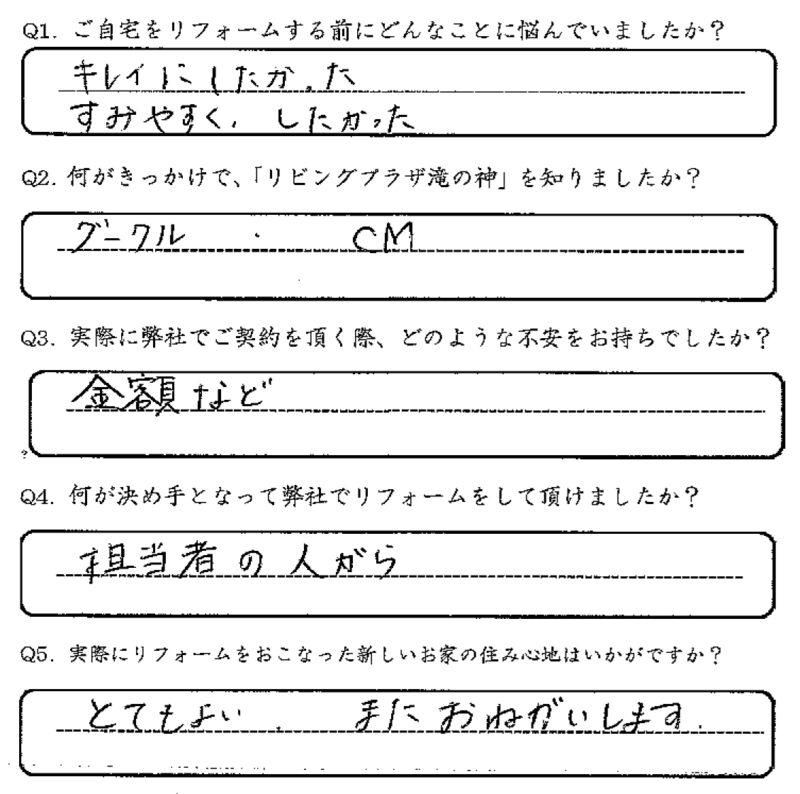 Q1. ご自宅をリフォームする前にどんなことに悩んでいましたか？
キレイにしたかった
すみやすく、したかった
Q2. 何がきっかけで、「リビングプラザ滝の神」を知りましたか？
グークル ・ CM
Q3. 実際に弊社でご契約を頂く際、どのような不安をお持ちでしたか？
金額など
Q4. 何が決め手となって弊社でリフォームをして頂けましたか？
担当者の人がら
Q5. 実際にリフォームをおこなった新しいお家の住み心地はいかがですか？
とてもよい． またおねがいします．